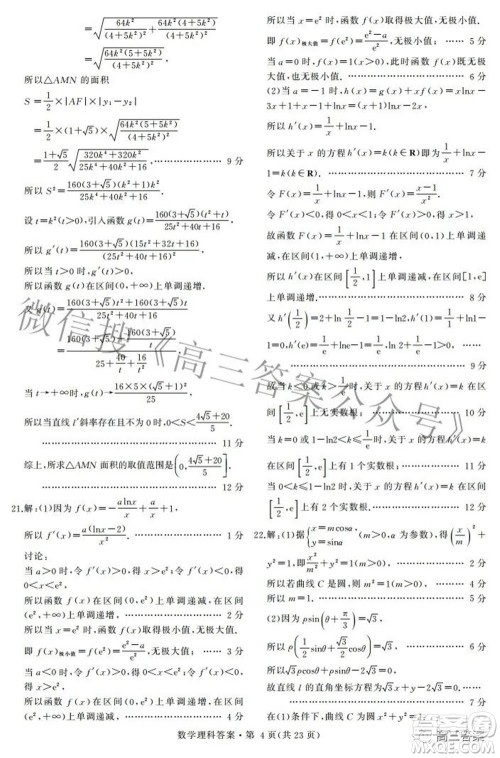 =√(64k²/(4+5k²)²+64k²/(4+5k²))
=√(64k²(5+5k²)/(4+5k²)²)
所以△AMN 的面积
S=1/2×|AF|×|y₁-y₂|
=1/2×(1+√5)×√(64k²(5+5k²)/(4+5k²)²)
=(1+√5)/2 √((320k⁴+320k²)/(25k⁴+40k²+16)). ………… 9 分
所以 S²=160(3+√5)(k²+1)k²/(25k⁴+40k²+16).
设 t=k²(t>0),引入函数 g(t)=160(3+√5)(t²+t)/(25t²+40t+16)
所以 g′(t)=160(3+√5)(15t²+32t+16)/(25t²+40t+16)²
因为当 t>0 时,g′(t)>0,
所以函数 g(t)在区间(0,+∞)上单调递增.
又函数 g(t)=(160(3+√5)t²+160(3+√5)t)/(25t²+40t+16)
当 t→+∞时,g(t)→16×5×(√5+1)²/25.
所以当直线 l′斜率存在且不为 0 时,0<S<(4√5+20)/5.
………… 11 分
综上,所求△AMN 面积的取值范围是(0,(4√5+20)/5].
………… 12 分
21.解:(1)因为 f(x)=-alnx/x+a/x+1,
所以 f′(x)=a(lnx-2)/x². ………… 2 分
讨论:
当 a>0 时,令 f′(x)>0,得 x>e²;令 f′(x)<0,得
0<x<e².
所以函数 f(x)在区间(0,e²)上单调递减,在区间
(e²,+∞)上单调递增.
所以当 x=e² 时,函数 f(x)取得极小值,无极大值.
即 f(x)极小值=f(e²)=(e²-a)/e²,无极大值; …… 4 分
当 a<0 时,令 f′(x)>0,得 0<x<e²;令 f′(x)<0,得
x>e².
所以函数 f(x)在区间(0,e²)上单调递增,在区间
(e²,+∞)上单调递减.
所以当 x=e² 时,函数 f(x)取得极大值,无极小值.
即 f(x)极大值=f(e²)=(e²-a)/e²,无极小值; …… 5 分
当 a=0 时,f(x)=1(x>0),此时函数 f(x)既无极
大值,也无极小值. ………… 6 分
(2)当 a=-1 时,h(x)=g(x)+xf(x)=xlnx-
3x+1+x-1+lnx=xlnx-2x+lnx.
所以 h′(x)=1/x+lnx-1.
所以关于 x 的方程 h′(x)=k(k∈R)即为1/x+lnx-1
=k(k∈R). ………… 7 分
令 F(x)=1/x+lnx-1,则 F′(x)=(x-1)/x².
令 F′(x)<0,得 0<x<1;令 F′(x)>0,得 x>1.
故函数 F(x)=1/x+lnx-1 在区间(0,1)上单调递减,
在区间(1,+∞)上单调递增.
所以 h′(x)在区间[1/2,1]上单调递减,在区间[1,e]
上单调递增.
又 h′(1/2)=2-ln2-1=1-ln2,h′(1)=1+ln1-1=
0,h′(e)=1/e+lne-1=1/e,且1-ln2<1/e, …………
………… 9 分
故当 k<0 或 k>1/e时,关于 x 的方程 h′(x)=k 在区
间[1/2,e]上无实数根; ………… 10 分
当 k=0 或 1-ln2<k≤1/e时,关于 x 的方程 h′(x)=k
在区间[1/2,e]上有 1 个实数根; ………… 11 分
当 0<k≤1-ln2 时,关于 x 的方程 h′(x)=k 在区间
[1/2,e]上有 2 个实数根. ………… 12 分
22.解:(1)根据{x=mcosα, y=sinα (m>0,α 为参数),得(x/m)²+
y²=1,即x²/m²+y²=1. ………… 4 分
所以若曲线 C 是圆,则 m²=1(m>0).
所以 m=1. ………… 5 分
(2)因为 ρsin(θ+π/3)=√3,
所以 ρ(1/2sinθ+√3/2cosθ)=√3. ………… 6 分
所以√3ρcosθ+ρsinθ-2√3=0.
故直线 l 的直角坐标方程为√3x+y-2√3=0.
………… 7 分
数学理科答案·第 4 页(共 23 页)
微信搜《高三答案公众号》
高三答案